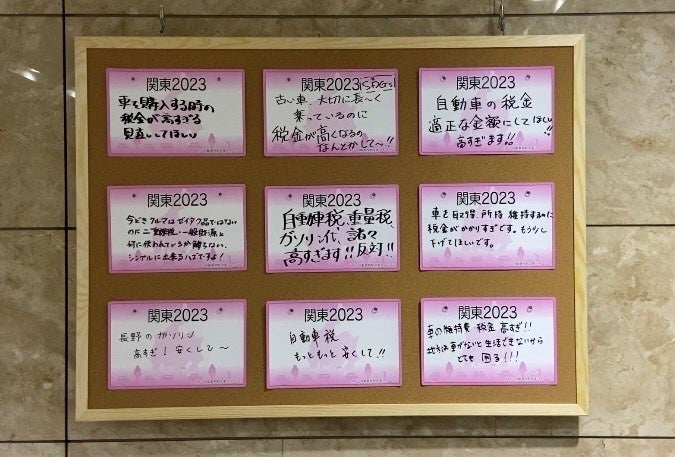 関東2023
車を購入する時の
税金が高すぎる
見直してほしい
関東2023
SDGs!
古い車、大切に長〜く
乗っているのに
税金が高くなるの
なんとかして〜!!
関東2023
自動車の税金
適正な金額にしてほしい!!
高すぎます!!
関東2023
今どきクルマはゼイタク品ではない
のに二重課税・一般財源と
何に使われているか解らない、
シンプルに出来るハズですよ!
関東2023
自動車税、重量税、
ガソリン代、諸々
高すぎます!!反対!!
関東2023
車を取得、所持、維持するのに
税金がかかりすぎです。もう少し
下げてほしいです。
関東2023
長野のガソリン
高すぎ!安くして〜
関東2023
自動車税
もっともっと安くして!!
関東2023
車の維持費、税金高すぎ!!
地方は車がないと生活できないから
とても困る!!!